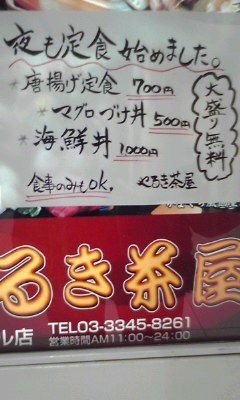 夜も定食始めました。
*唐揚げ定食 700円
*マグロづけ丼 500円
*海鮮丼 1000円
大盛り無料
食事のみもOK。 やるき茶屋
るき茶屋
ル店 TEL03-3345-8261
営業時間AM11:00～24:00